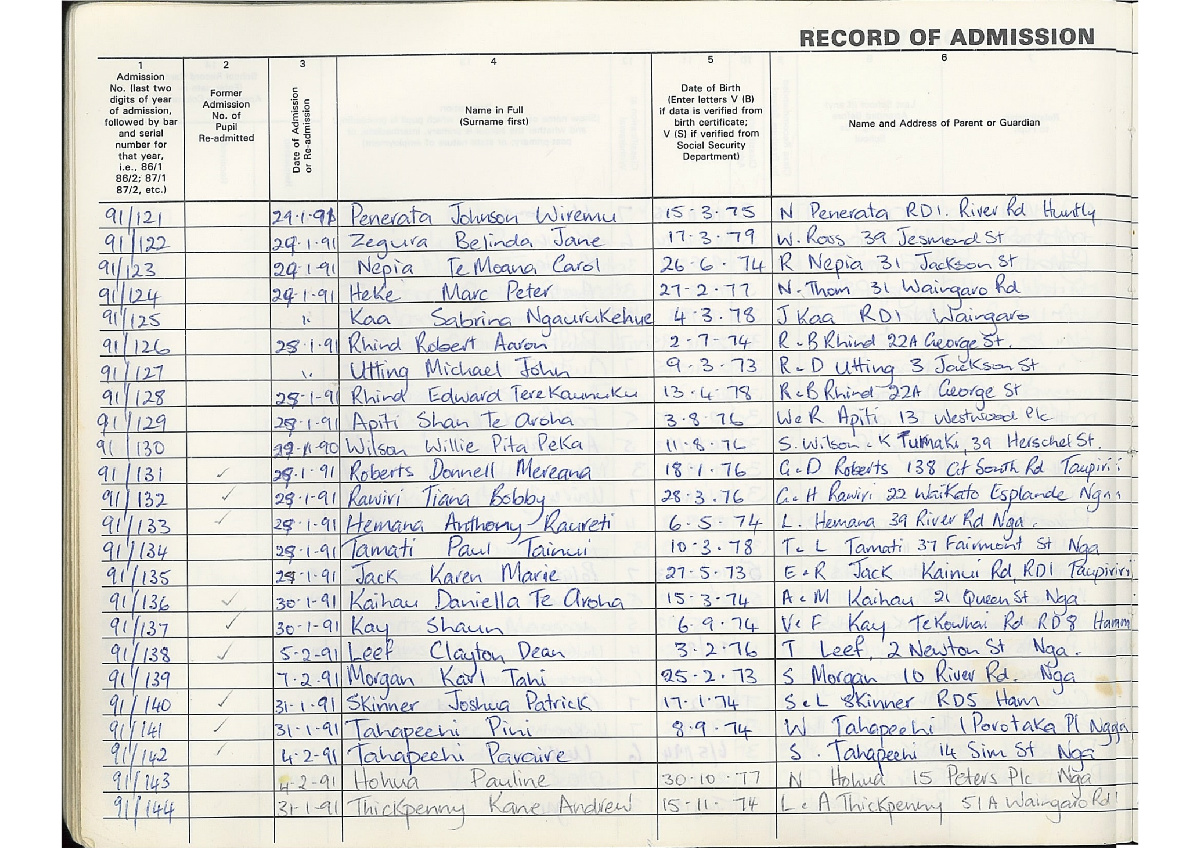 RECORD OF ADMISSION
1 2 3 4 5 6
Admission No. (last two digits of year of admission, followed by bar and serial number for that year, i.e., 86/1 86/2; 87/1 87/2, etc.)
Former Admission No. of Pupil Re-admitted
Date of Admission or Re-admission
Name in Full (Surname first)
Date of Birth (Enter letters V (B) if data is verified from birth certificate; V (S) if verified from Social Security Department)
Name and Address of Parent or Guardian
91/121 29·1·91 Penerata Johnson Wiremu 15·3·75 N Penerata RD1. River Rd Huntly
91/122 29·1·91 Zegura Belinda Jane 17·3·79 W. Ross 39 Jesmond St
91/123 29·1·91 Nepia Te Moana Carol 26·6·74 R Nepia 31 Jackson St
91/124 29·1·91 Heke Marc Peter 27-2-77 N. Thom 31 Waingaro Rd
91/125 " Kaa Sabrina Ngaurukehue 4·3·78 J Kaa RD1 Waingaro
91/126 28·1·91 Rhind Robert Aaron 2-7-74 R & B Rhind 22A George St.
91/127 " Utting Michael John 9·3·73 R & D Utting 3 Jackson St
91/128 28·1-91 Rhind Edward Tere Kaunuku 13·4·78 R & B Rhind 22A George St
91/129 28·1-91 Apiti Shan Te Aroha 3·8·76 W & R Apiti 13 Westwood Plc
91/130 Wilson Willie Pita Peka 11-8·76 S. Wilson & K Tumaki, 39 Herschel St.
91/131 ✓ 28·1·91 Roberts Donnell Mereana 18·1·76 G & D Roberts 138 Gt South Rd Taupiri
91/132 ✓ 28·1·91 Rawiri Tiana Bobby 28·3·76 G & H Rawiri 22 Waikato Esplande
91/133 ✓ 28·1·91 Hemana Anthony Raureti 6·5·74 L. Hemana 39 River Rd Nga.
91/134 28·1·91 Tamati Paul Tainui 10·3·78 T & L Tamati 37 Fairmont St Nga
91/135 28·1·91 Jack Karen Marie 27-5·73 E & R Jack Kainui Rd, RD1 Taupiri
91/136 ✓ 30·1·91 Kaihau Daniella Te Aroha 15·3·74 A & M Kaihau 21 Queen St Nga
91/137 ✓ 30·1·91 Kay Shaun 6·9·74 V & F Kay Te Kowhai Rd RD8 Hamm
91/138 ✓ 5·2·91 Leef Clayton Dean 3·2·76 T Leef, 2 Newton St Nga.
91/139 7·2·91 Morgan Karl Tahi 25·2·73 S Morgan 10 River Rd. Nga
91/140 ✓ 31·1·91 Skinner Joshua Patrick 17·1·74 S & L Skinner RD5 Ham
91/141 ✓ 31·1·91 Tahapeehi Pini 8·9·74 W Tahapeehi 1 Porotaka Pl Ngga
91/142 ✓ 4-2-91 Tahapeehi Paraire S. Tahapeehi 14 Sim St Nga
91/143 4-2-91 Hohua Pauline 30·10·77 N Hohua 15 Peters Plc Nga
91/144 31·1·91 Thickpenny Kane Andrew 15·11·74 L & A Thickpenny 51A Waingaro Rd